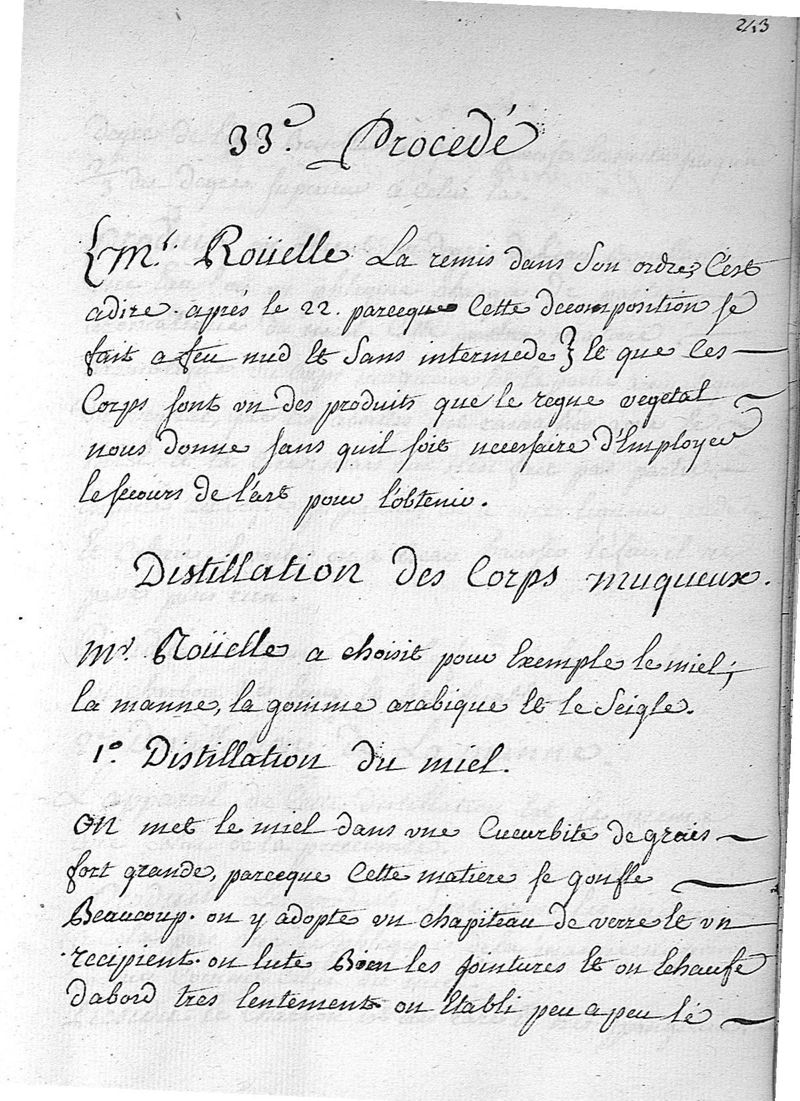 243
33.e Procedé
{Mr. Roüelle La remis dans Son ordre, C'est
adire. aprés le 22. parceque Cette decomposition se
fait a feu nud Et Sans intermede} Et que Ces
Corps sont un des produits que le regne vegetal
nous donne sans quil soit necessaire d'Employer
le secours de l'art pour l'obtenir.
Distillation des Corps muqueux.
Mr. Roüelle a choisit pour Exemple le miel,
la manne, la gomme arabique Et le Seigle.
1.o Distillation du miel.
On met le miel dans une Cucurbite de grais
fort grande, parceque Cette matiere se gonfle
Beaucoup. on y adopte un chapiteau de verre Et un
recipient. on lute Bien les jointures Et on Echaufe
dabord tres lentement on Etabli peu a peu le